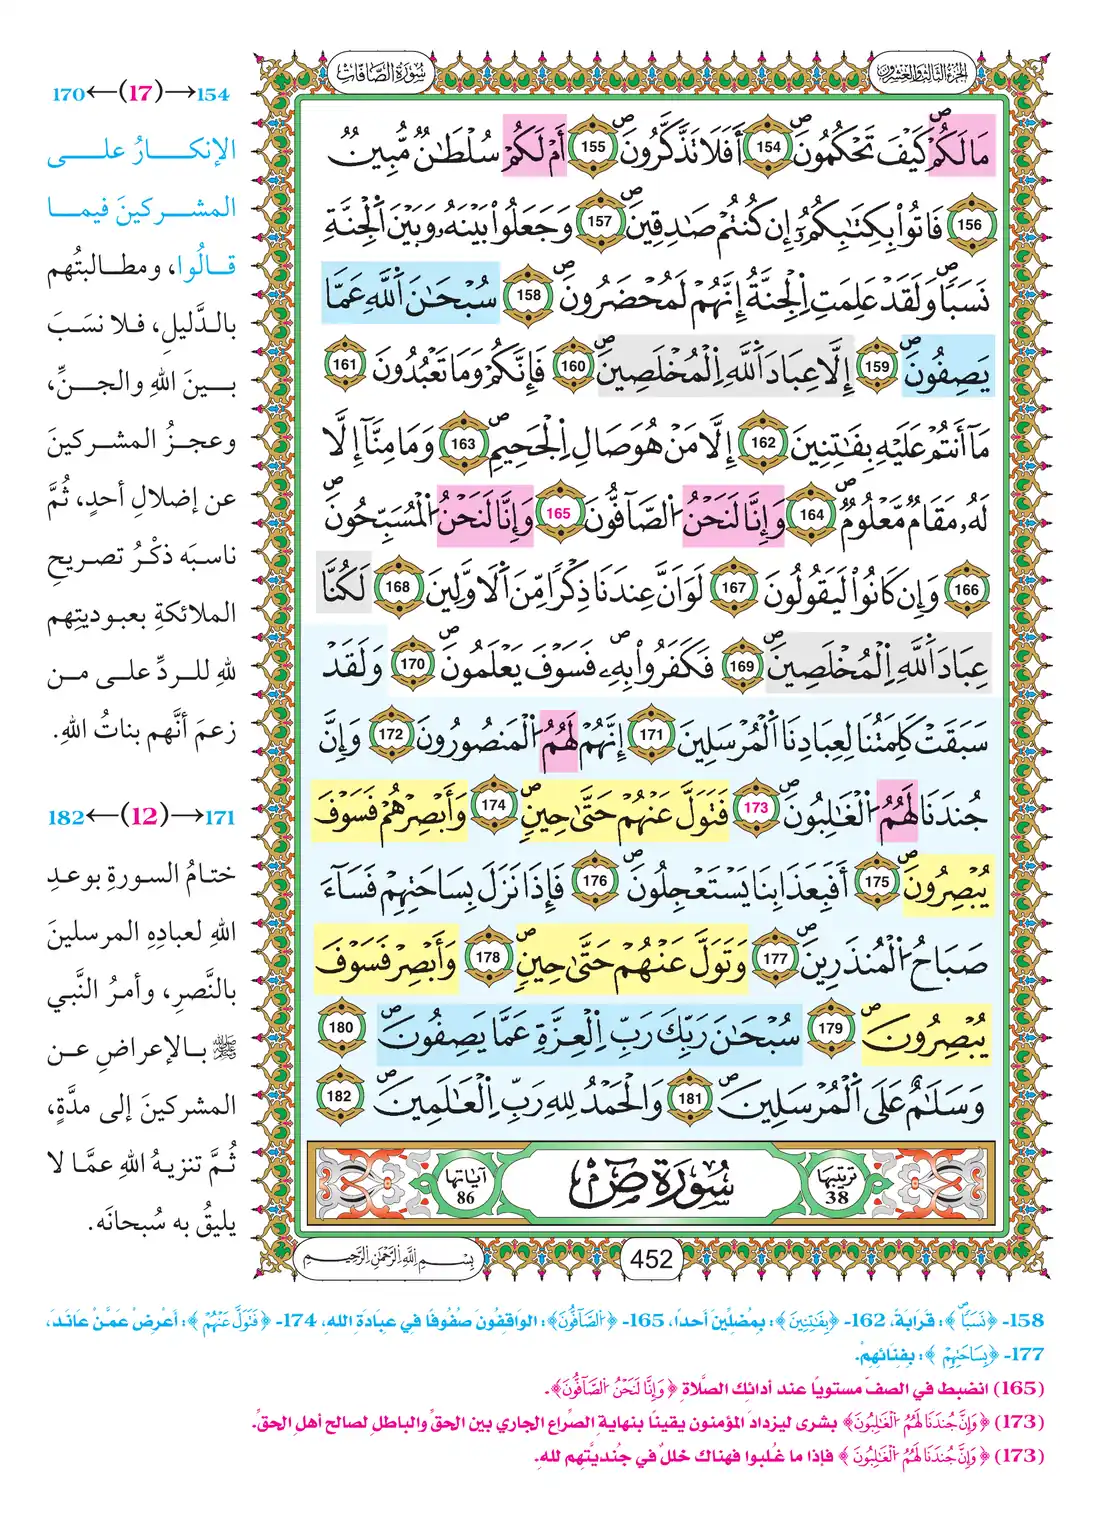 سُورَةُ الصَّافَّاتِ
الجُزءُ الثَّالِثُ وَالعِشْرُونَ
مَا لَكُمْ كَيْفَ تَحْكُمُونَ ۖ 154 أَفَلَا تَذَّكَّرُونَ ۖ 155 أَمْ لَكُمْ سُلْطَٰنٌ مُّبِينٌ
156 فَاتُوا۟ بِكِتَٰبِكُمُۥٓ إِن كُنتُمْ صَٰدِقِينَ ۖ 157 وَجَعَلُوا۟ بَيْنَهُۥ وَبَيْنَ اَ۬لْجِنَّةِ
نَسَبًا ۖ وَلَقَدْ عَلِمَتِ اِ۬لْجِنَّةُ إِنَّهُمْ لَمُحْضَرُونَ ۖ 158 سُبْحَٰنَ اَ۬للَّهِ عَمَّا
يَصِفُونَ ۖ 159 إِلَّا عِبَادَ اَ۬للَّهِ اِ۬لْمُخْلَصِينَ ۖ 160 فَإِنَّكُمْ وَمَا تَعْبُدُونَ 161
مَآ أَنتُمْ عَلَيْهِ بِفَٰتِنِينَ 162 إِلَّا مَنْ هُوَ صَالِ اِ۬لْجَحِيمِ ۖ 163 وَمَا مِنَّآ إِلَّا
لَهُۥ مَقَامٌ مَّعْلُومٌ ۖ 164 وَإِنَّا لَنَحْنُ اُ۬لصَّآفُّونَ 165 وَإِنَّا لَنَحْنُ اُ۬لْمُسَبِّحُونَ ۖ
166 وَإِن كَانُوا۟ لَيَقُولُونَ 167 لَوَ اَنَّ عِندَنَا ذِكْرًا مِّنَ اَ۬لَاوَّلِينَ 168 لَكُنَّا
عِبَادَ اَ۬للَّهِ اِ۬لْمُخْلَصِينَ ۖ 169 فَكَفَرُوا۟ بِهِۦ ۖ فَسَوْفَ يَعْلَمُونَ ۖ 170 وَلَقَدْ
سَبَقَتْ كَلِمَتُنَا لِعِبَادِنَا اَ۬لْمُرْسَلِينَ 171 إِنَّهُمْ لَهُمُ اُ۬لْمَنصُورُونَ 172 وَإِنَّ
جُندَنَا لَهُمُ اُ۬لْغَٰلِبُونَ ۖ 173 فَتَوَلَّ عَنْهُمْ حَتَّىٰ حِينٍ ۖ 174 وَأَبْصِرْهُمْ فَسَوْفَ
يُبْصِرُونَ ۖ 175 أَفَبِعَذَابِنَا يَسْتَعْجِلُونَ ۖ 176 فَإِذَا نَزَلَ بِسَاحَتِهِمْ فَسَآءَ
صَبَاحُ اُ۬لْمُنذَرِينَ ۖ 177 وَتَوَلَّ عَنْهُمْ حَتَّىٰ حِينٍ ۖ 178 وَأَبْصِرْ فَسَوْفَ
يُبْصِرُونَ ۖ 179 سُبْحَٰنَ رَبِّكَ رَبِّ اِ۬لْعِزَّةِ عَمَّا يَصِفُونَ ۖ 180
وَسَلَٰمٌ عَلَى اَ۬لْمُرْسَلِينَ ۖ 181 وَالْحَمْدُ لِلهِ رَبِّ اِ۬لْعَٰلَمِينَ ۖ 182
ترتيبها 38
سُورَةُ صٓ
آياتها 86
452
بِسْمِ اللَّهِ الرَّحْمَٰنِ الرَّحِيمِ
170←(17)→154
الإنكارُ على
المشركينَ فيما
قالُوا، ومطالبتُهم
بالدَّليلِ، فلا نسَبَ
بينَ اللهِ والجنِّ،
وعجزُ المشركينَ
عن إضلالِ أحدٍ، ثُمَّ
ناسبَه ذكْرُ تصريحِ
الملائكةِ بعبوديتِهم
للهِ للردِّ على من
زعمَ أنَّهم بناتُ اللهِ.
182←(12)→171
ختامُ السورةِ بوعدِ
اللهِ لعبادِهِ المرسلينَ
بالنَّصرِ، وأمرُ النَّبي
ﷺ بالإعراضِ عن
المشركينَ إلى مدَّةٍ،
ثُمَّ تنزيهُ اللهِ عمَّا لا
يليقُ به سُبحانَه.
158- ﴿نَسَبًا ۖ﴾: قَرَابَةً، 162- ﴿بِفَٰتِنِينَ﴾: بِمُضِلِّينَ أحداً، 165- ﴿اُ۬لصَّآفُّونَ﴾: الوَاقِفُونَ صُفُوفًا فِي عِبَادَةِ اللهِ، 174- ﴿فَتَوَلَّ عَنْهُمْ﴾: أَعْرِضْ عَمَّنْ عَانَدَ،
177- ﴿بِسَاحَتِهِمْ﴾: بِفِنَائِهِمْ.
(165) انضبط في الصفّ مستويًا عند أدائك الصَّلاة ﴿وَإِنَّا لَنَحْنُ اُ۬لصَّآفُّونَ﴾.
(173) ﴿وَإِنَّ جُندَنَا لَهُمُ اُ۬لْغَٰلِبُونَ﴾ بشرى ليزدادَ المؤمنون يقينًا بنهايةِ الصِّراع الجاري بين الحقِّ والباطلِ لصالح أهل الحقِّ.
(173) ﴿وَإِنَّ جُندَنَا لَهُمُ اُ۬لْغَٰلِبُونَ﴾ فإذا ما غُلبوا فهناك خللٌ في جُنديَّتِهم لله.